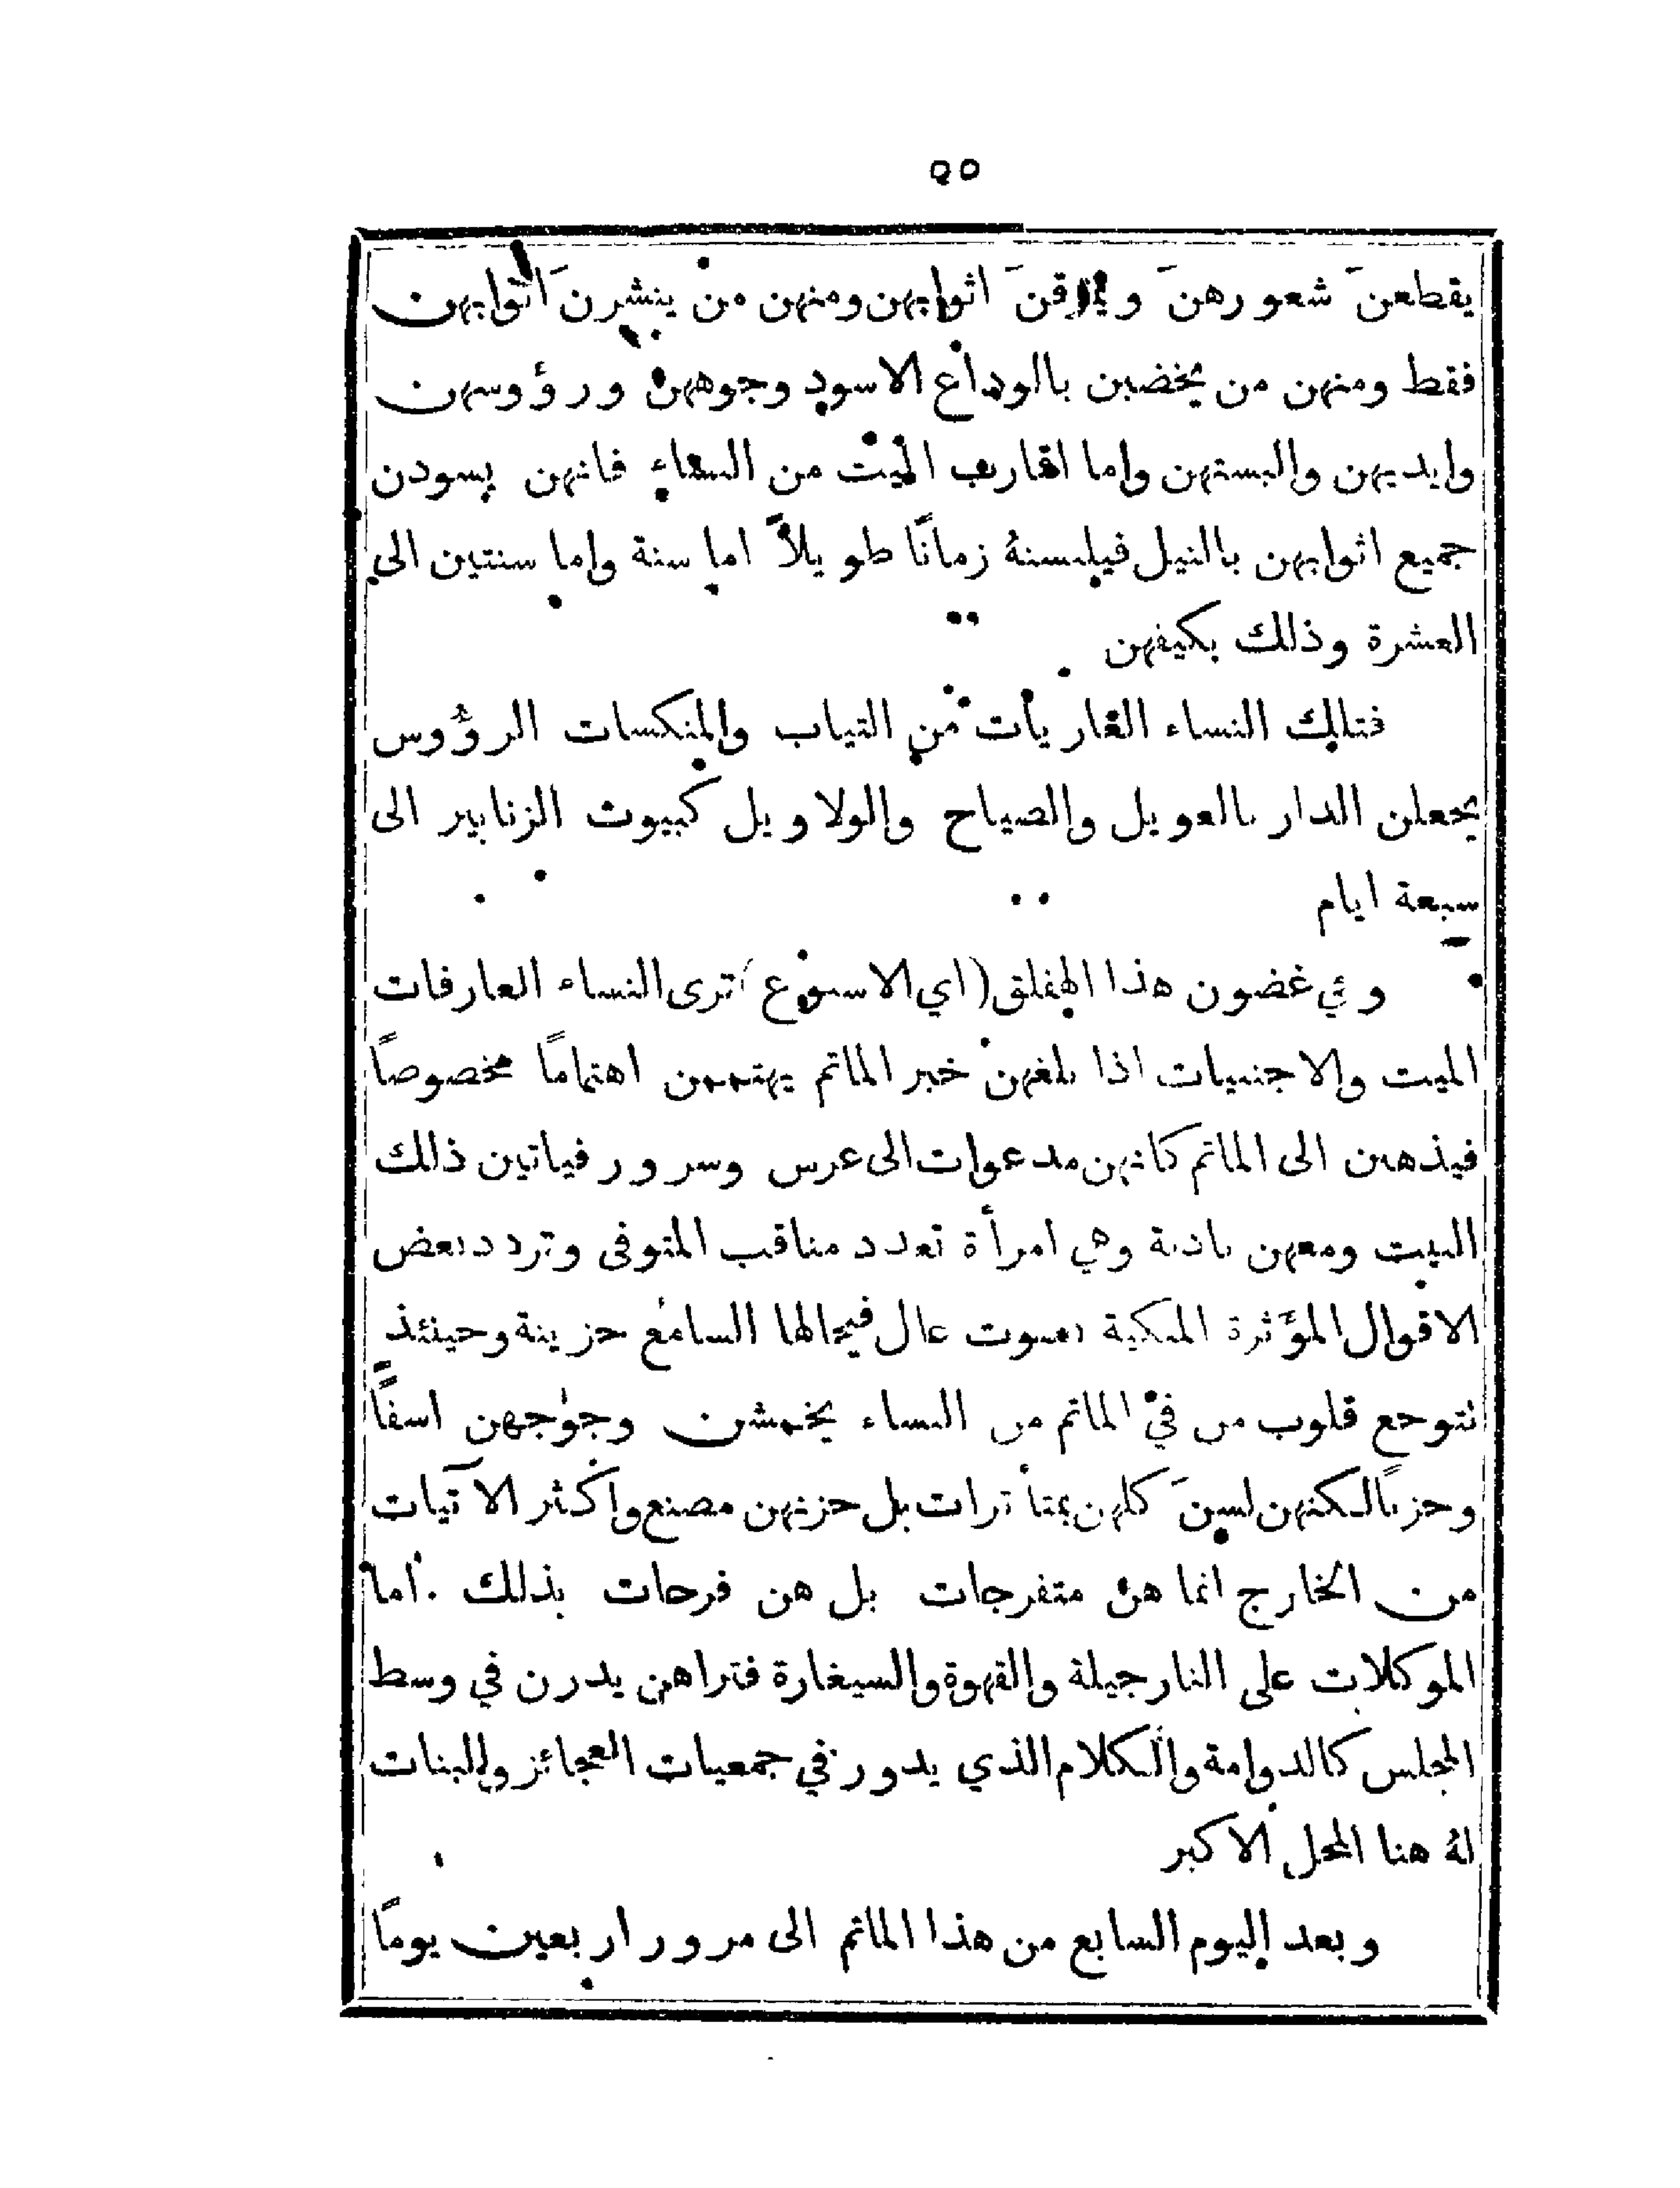 ٥٥
يقطعنَ شعورهنَ ويمزقنَ اثوابهن ومنهن من ينشرنَ اثوابهن
فقط ومنهن من يخضبن بالوداع الاسود وجوههن ورؤوسهن
وايديهن والبستهن واما اقارب الميت من النساء فانهن يسودن
جميع اثوابهن بالنيل فيلبسنهُ زمانًا طويلاً اما سنة واما سنتين الى
العشرة وذلك بكيفهن
فتلك النساء العاريات من الثياب والمنكسات الرؤوس
يجعلن الدار بالعويل والصياح والولاويل كبيوت الزنابير الى
سبعة ايام
وفي غضون هذا الهفلق (اي الاسبوع) ترى النساء العارفات
الميت والاجنبيات اذا بلغهن خبر الماتم يهتممن اهتمامًا مخصوصًا
فيذهبن الى الماتم كانهن مدعوات الى عرس وسرور فياتين ذلك
البيت ومعهن نادبة وهي امرأة تعدد مناقب المتوفى وتردد بعض
الاقوال المؤثرة المبكية بصوت عال فيخالها السامع حزينة وحينئذٍ
تتوجع قلوب من في الماتم من النساء يخمشن وجوجهن اسفًا
وحزنًا لكنهن لسنَ كلهن بمتأثرات بل حزنهن مصنع واكثر الآتيات
من الخارج انما هن متفرجات بل هن فرحات بذلك . اما
الموكلات على النارجيلة والقهوة والسيغارة فتراهن يدرن في وسط
المجلس كالدوامة والكلام الذي يدور في جمعيات العجائز والبنات
لهُ هنا المحل الاكبر
وبعد اليوم السابع من هذا الماتم الى مرور اربعين يومًا